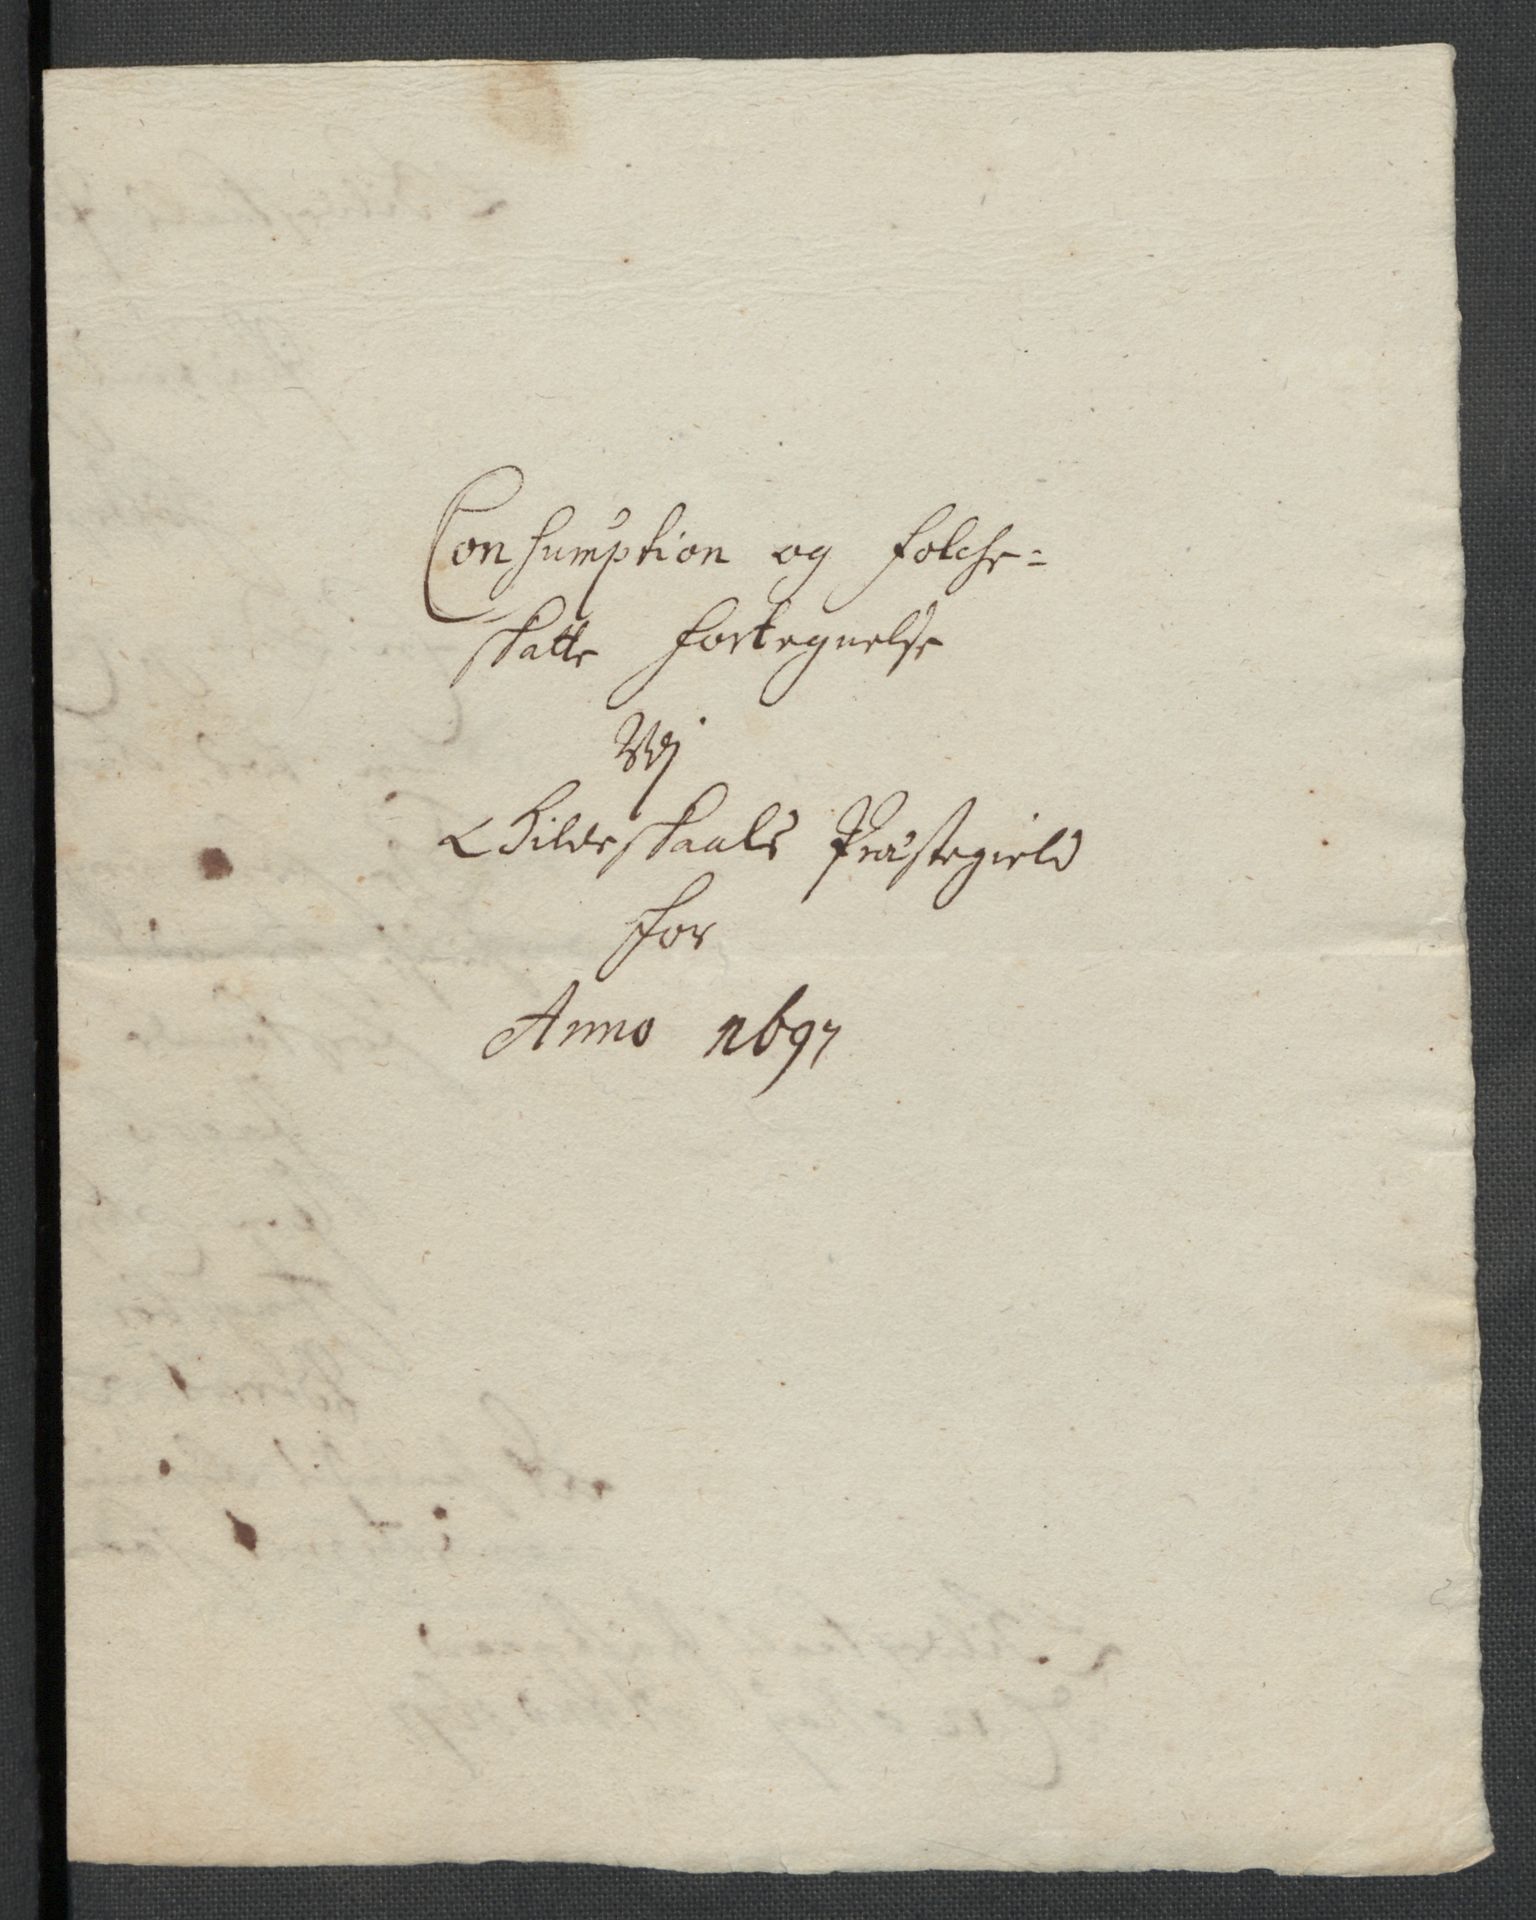 Consumption og Folche=
skatts Fortegnelse
Udj
Gildeskaals Præstegield
for
Anno 1697